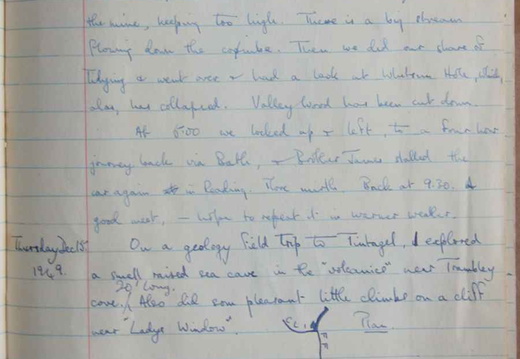 the mine, keeping too high. There is a big stream
flowing down the coombe. Then we did our share of
tidying & went over & had a look at Whitsun Hole, which,
alas, has collapsed. Valley Wood has been cut down.
At 5.00 we locked up & left, to a four hour
journey back via Bath, & Brother James stalled the
car again in Reading. More mirth. Back at 9.30. A
good meet, – hope to repeat it in warmer weather.
Thursday Dec 15th 1949.
On a geology Field Trip to Tintagel, I explored
a small raised sea cave in the "volcanics" near Trambley
cove, 20' long. Also did some pleasant little climbs on a cliff
near "Ladys Window".
Plan.